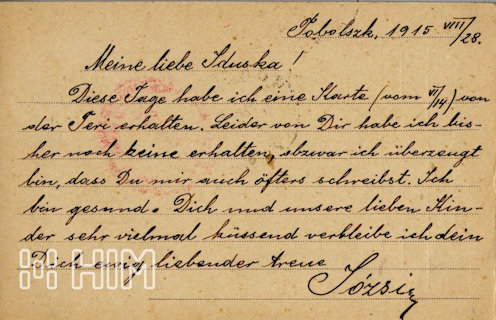 Tobolszk, 1915 VIII/28.
Meine liebe Iduska!
Diese Tage habe ich eine Karte (vom VI/14) von
der Teri erhalten. Leider von Dir habe ich bis-
her noch keine erhalten, obzwar ich überzeugt
bin, dass Du mir auch öfters schreibst. Ich
bin gesund. Dich und unsere lieben Kin-
der sehr vielmal küssend verbleibe ich dein
Dich ewig liebender treue
Józsi
HIM